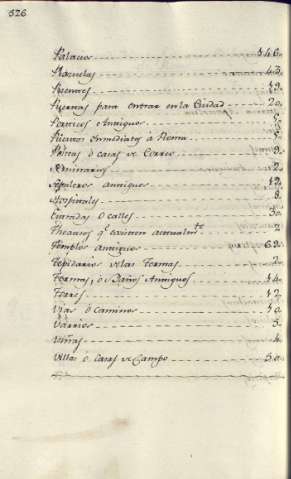 526
Palacios 146.
Plazuelas 43.
Puentes 19.
Puertas para entrar en la Ciudad 20.
Porticos Antiguos 5.
Puertos immediatos à Roma 5.
Postas ò casas de Correo 9.
Seminarios 2.
Sepulcros antiguos 12.
Hospitales 8.
Estradas ò calles 30.
Theatros qᵉ existen actualmᵗᵉ 2.
Templos antiguos 62.
Tepidarios de las Termas 2.
Termas, ò Baños Antiguos 14.
Torres 12.
Vias ò caminos 10.
Varrios 5.
Viñas 4.
Villas ò Casas de Campo 50.